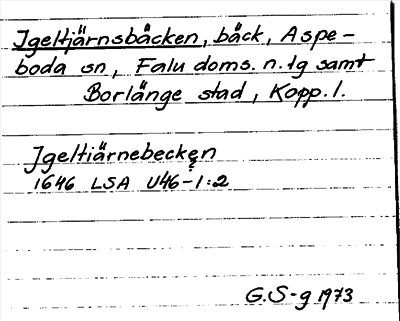 Igeltjärnsbäcken, bäck, Aspe-
boda sn, Falu doms. n. tg samt
Borlänge stad, Kopp. l.
Igeltiärnebecken
1646 LSA U46-1:2
G.S-g 1973